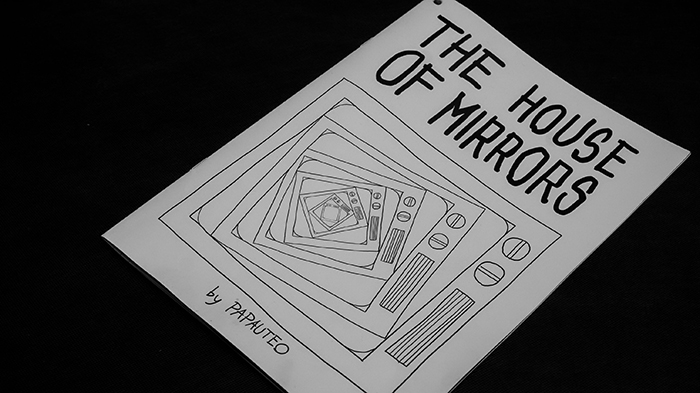 THE HOUSE
OF MIRRORS
by PAPAUTEO